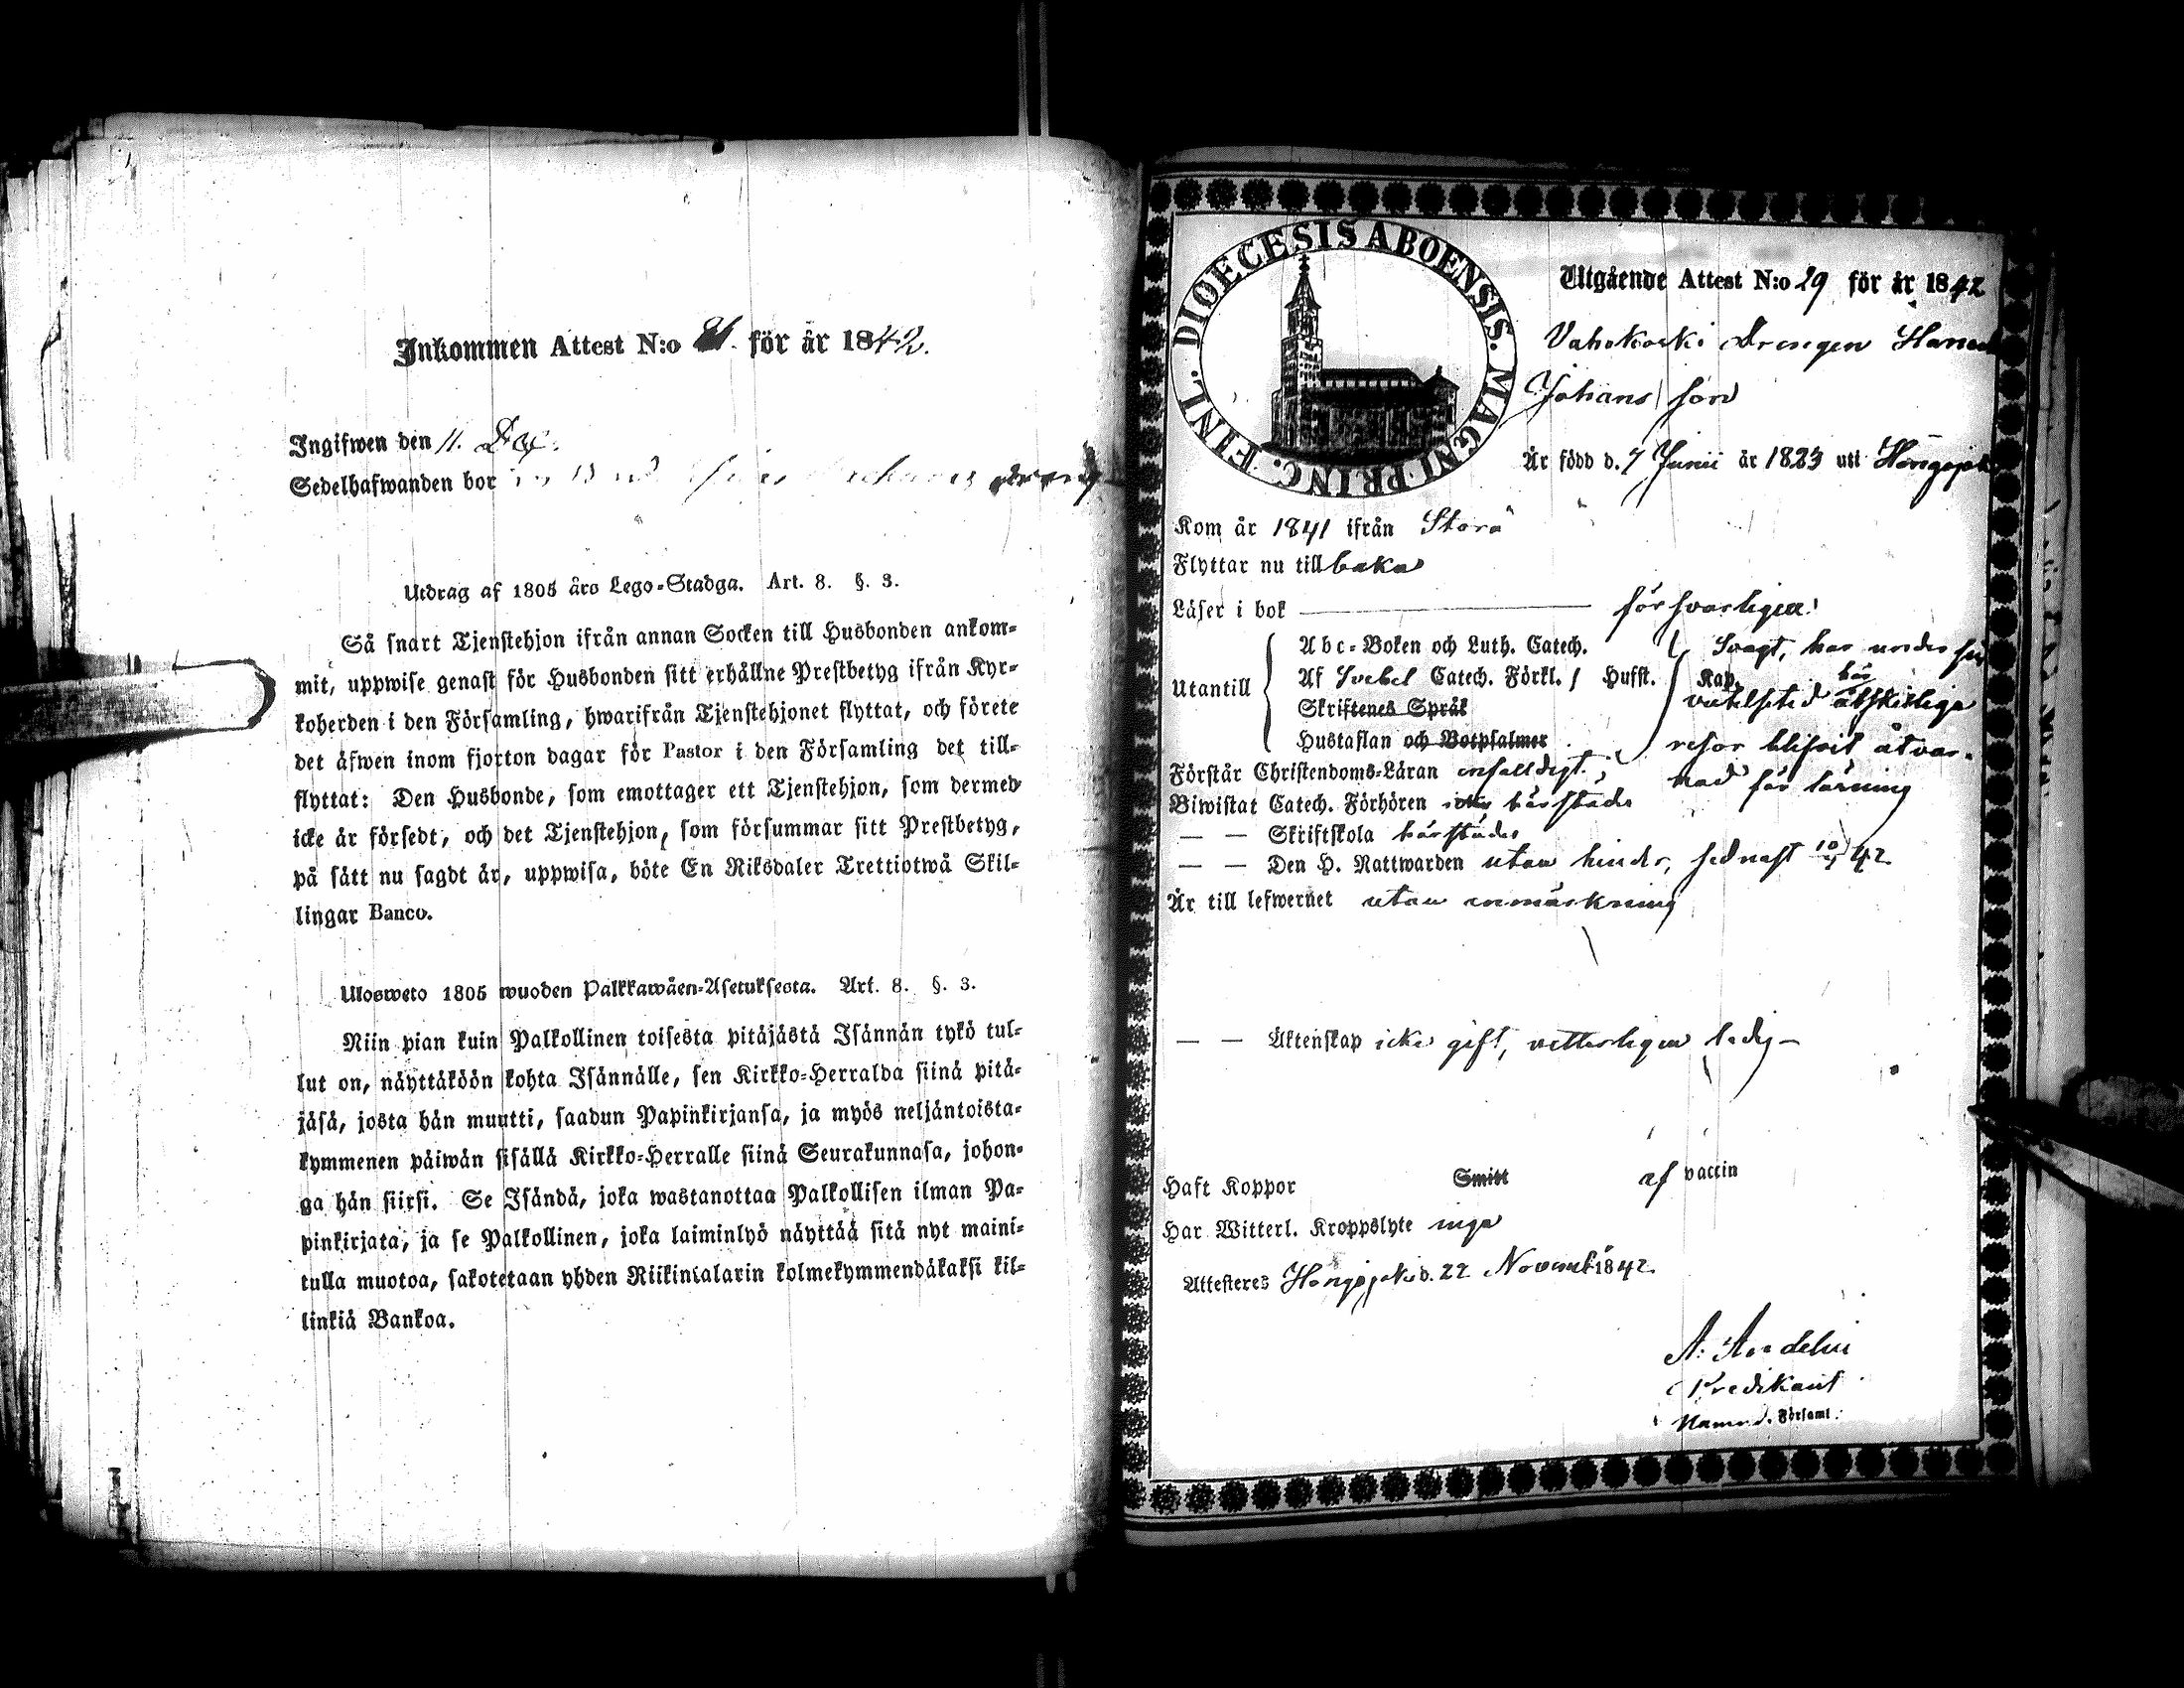 Inkommen Attest N:o för år 1842.
Ingifwen den 11. Dec.
Sedelhafwanden bor
Utdrag af 1805 års Lego-Stadga. Art. 8. §. 3.
Så snart Tjenstehjon ifrån annan Socken till Husbonden ankom-
mit, uppwise genast för Husbonden sitt erhållne Prestbetyg ifrån Kyr-
koherden i den Församling, hwarifrån Tjenstehjonet flyttat, och förete
det äfwen inom fjorton dagar för Pastor i den Församling det till-
flyttat: Den Husbonde, som emottager ett Tjenstehjon, som dermed
icke är försedt, och det Tjenstehjon, som försummar sitt Prestbetyg,
på sätt nu sagdt är, uppwisa, böte En Riksdaler Trettiotwå Skil-
lingar Banco.
Ulosweto 1805 wuoden Palkkawäen-Asetuksesta. Art. 8. §. 3.
Niin pian kuin Palkollinen toisesta pitäjästä Isännän tykö tul-
lut on, näyttäköön kohta Isännälle, sen Kirkko-Herralda siinä pitä-
jäsä, josta hän muutti, saadun Papinkirjansa, ja myös neljäntoista-
kymmenen päiwän sisällä Kirkko-Herralle siinä Seurakunnasa, johon-
ga hän siirsi. Se Isändä, joka wastanottaa Palkollisen ilman Pa-
pinkirjata, ja se Palkollinen, joka laiminlyö näyttää sitä nyt maini-
tulla muotoa, sakotetaan yhden Riikintalarin kolmekymmendäkaksi kil-
linkiä Bankoa.
DIOECESIS ABOENSIS. MAGNI PRINC. FINL.
Utgående Attest N:o 29 för år 1842
Vahokoski Drengen
Johans son
Är född d. 7 Junii år 1823 uti
Kom år 1841 ifrån Storå
Flyttar nu tillbaka
Läser i bok försvarligen
Abc-Boken och Luth. Catech. Svagt, har under
Utantill Af Svebel Catech. Förkl. Hufst. Kap. här
Skriftenes Språk
Hustaflan och Botpsalmer resor blifvit åtvar-
Förstår Christendoms-Läran enfaldigt. nad för
Biwistat Catech. Förhören härstädes
— — Skriftskola härstädes
— — Den H. Nattwarden utan hinder, sednast 42
Är till lefwernet utan anmärkning
— — Äktenskap icke gift, vetterligen ledig
Haft Koppor Smitt af vaccin
Har Witterl. Kroppslyte inga
Attesteres d. 22 Novemb 1842.
Predikant
Församl.